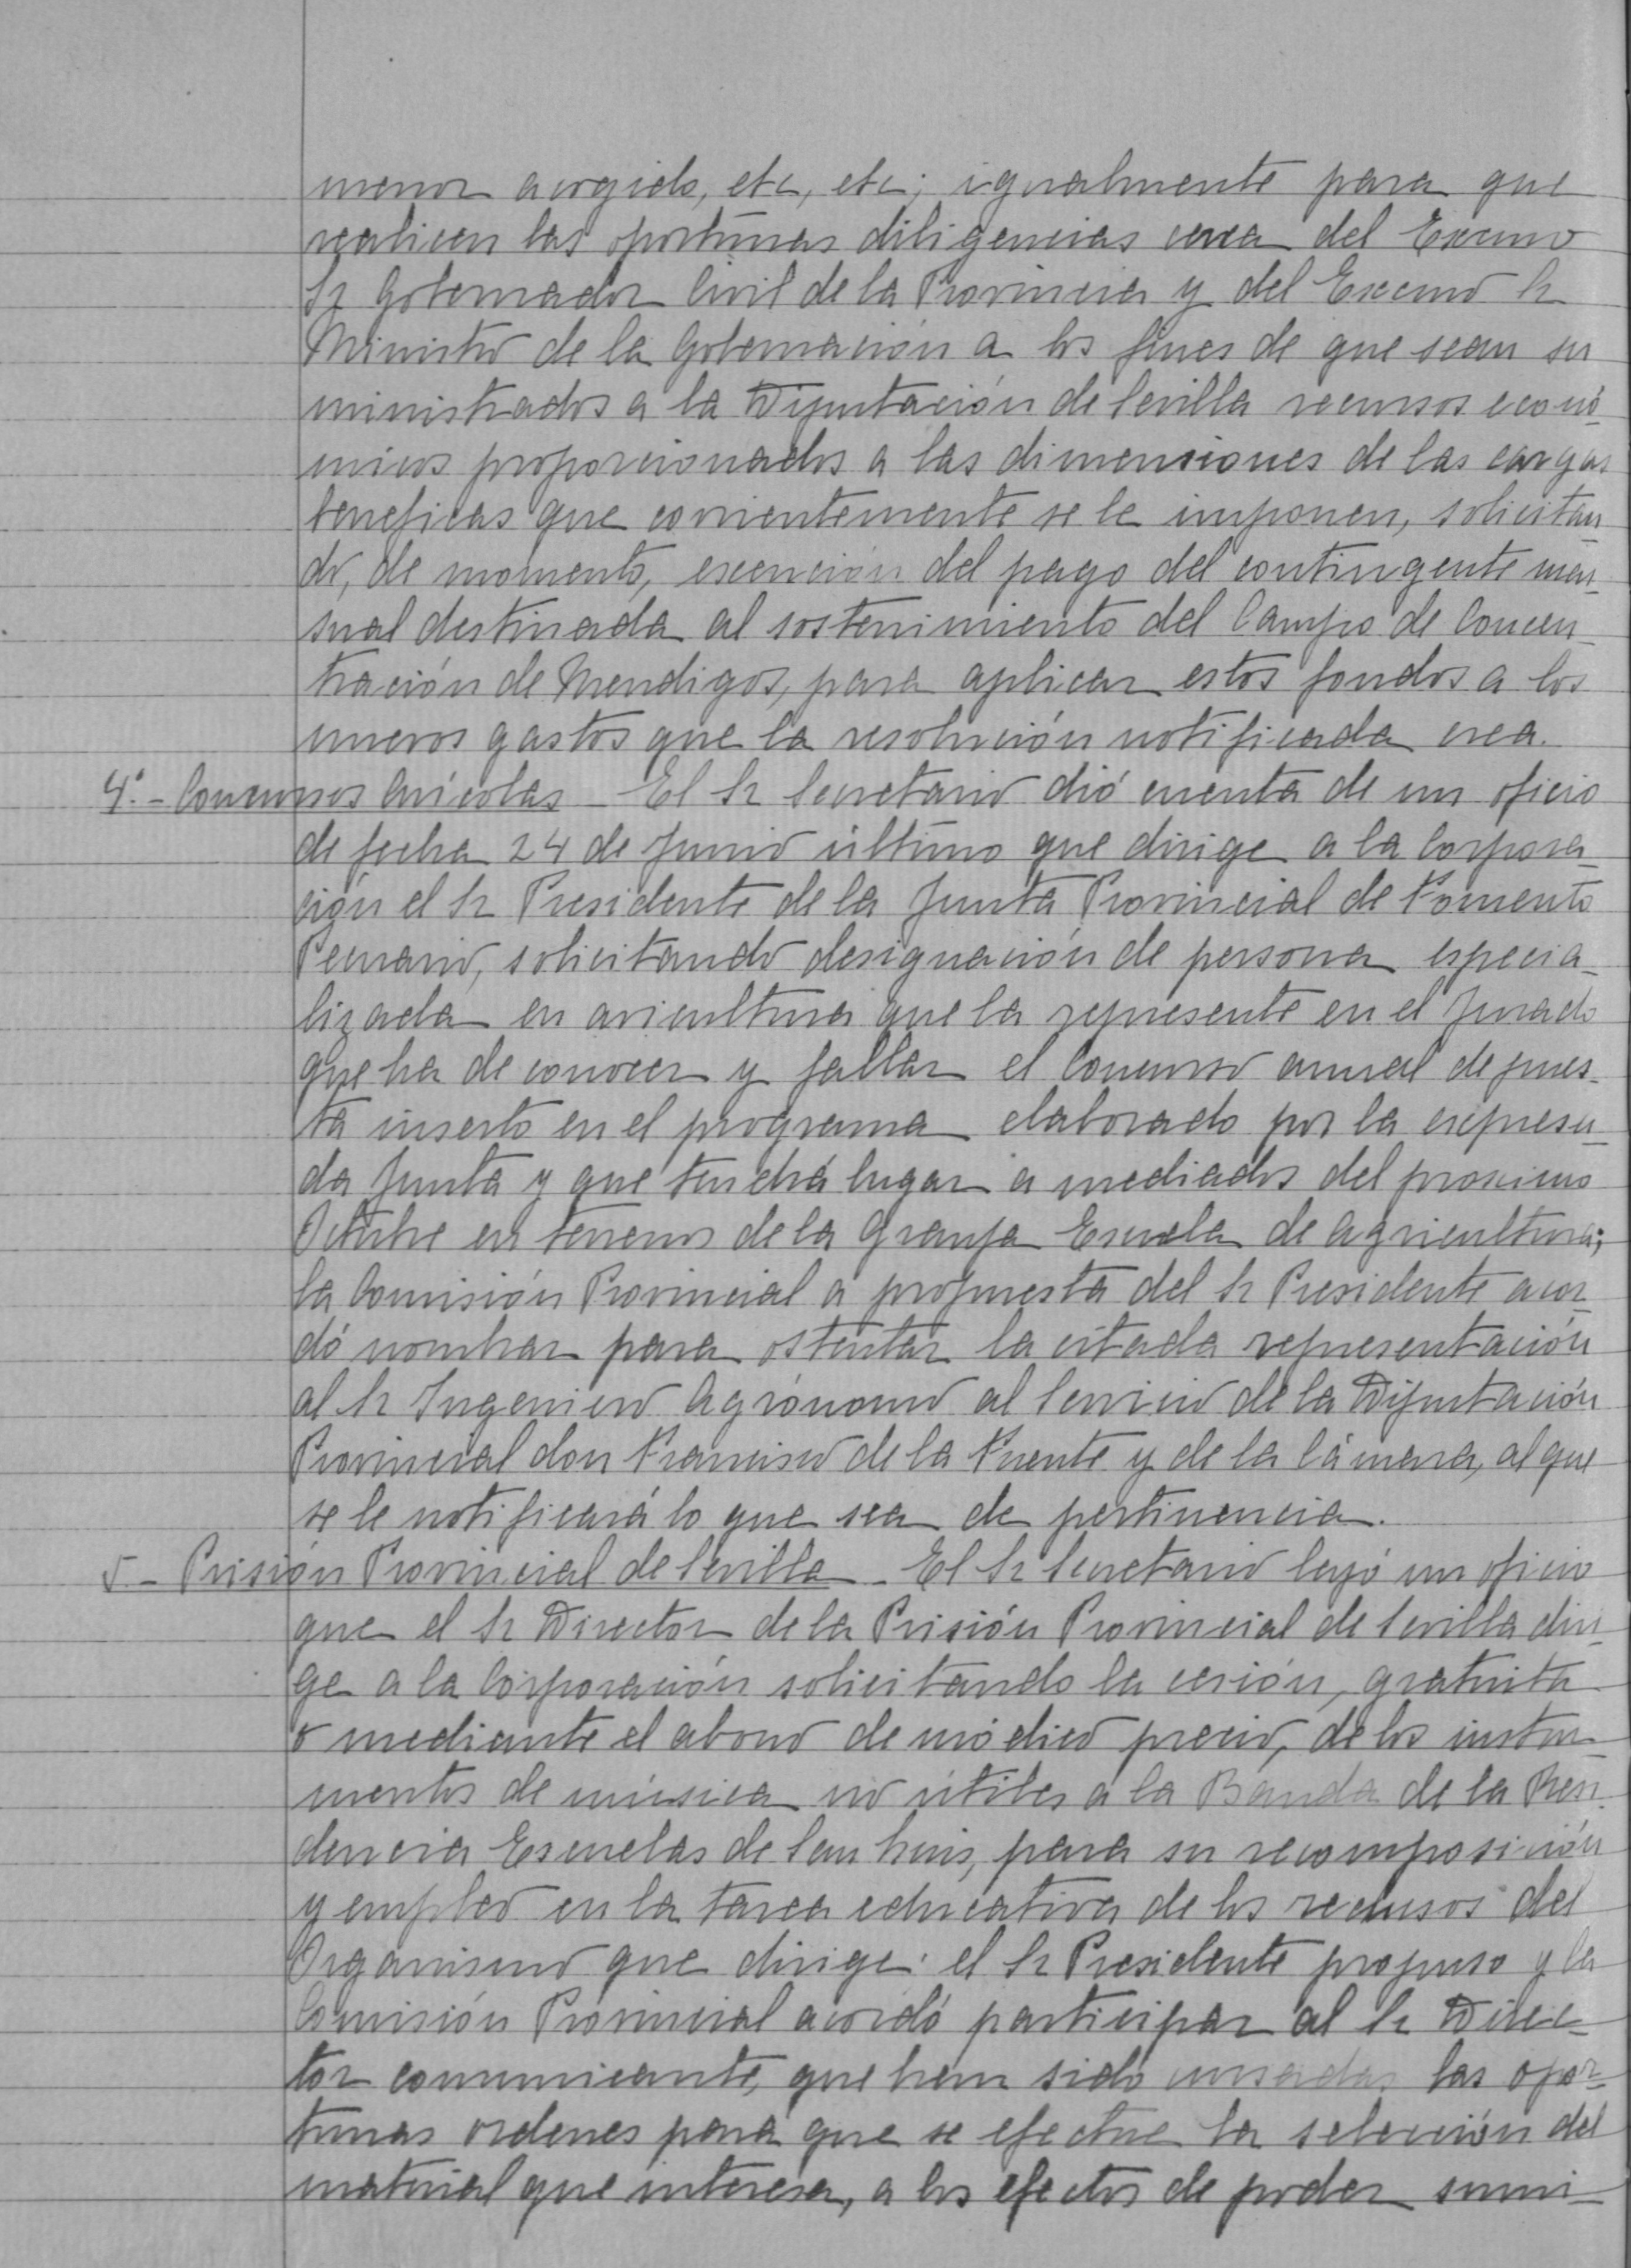 menor acogido, etc, etc; igualmente para que
realicen las oportunas diligencias cerca del Excmo
Sr Gobernador Civil de la Provincia y del Excmo Sr
Ministro de la Gobernación a los fines de que sean su
ministrados a la Diputación de Sevilla recursos econó-
micos proporcionados a las dimensiones de las cargas
beneficas que corrientemente se le imponen, solicitan-
do, de momento, exención del pago del contingente men-
sual destinada al sostenimiento del Campo de Concen-
tración de Mendigos, para aplicar estos fondos a los
nuevos gastos que la resolución notificada crea.
4º.- Concursos Avícolas - El Sr Secretario dió cuenta de un oficio
de fecha 24 de Junio último que dirige a la Corpora-
ción el Sr Presidente de la Junta Provincial de Fomento
Pecuario, solicitando designación de persona especia-
lizada en avicultura que la represente en el Jurado
que ha de conocer y fallar el Concurso anual de pues-
ta inserto en el programa elaborado por la expresa-
da Junta y que tendrá lugar a mediados del proximo
Octubre en terrenos de la Granja Escuela de Agricultura;
la Comisión Provincial a propuesta del Sr Presidente acor-
dó nombrar para ostentar la citada representación
al Sr Ingeniero Agrónomo al Servicio de la Diputación
Provincial don Francisco de la Puente y de la Cámara, al que
se le notificará lo que sea de pertinencia.
5.- Prisión Provincial de Sevilla - El Sr Secretario leyó un oficio
que el Sr Director de la Prisión Provincial de Sevilla diri-
ge a la Corporación solicitando la cesión, gratuita
o mediante el abono de módico precio, de los instru-
mentos de música no útiles a la Banda de la Resi-
dencia Escuelas de San Luis, para su recomposición
y empleo en la tarea educativa de los reclusos del
Organismo que dirige: el Sr Presidente propuso y la
Comisión Provincial acordó participar al Sr Direc-
tor comunicante, que han sido cursadas las opor-
tunas ordenes para que se efectue la selección del
material que interesa, a los efectos de poder sumi-